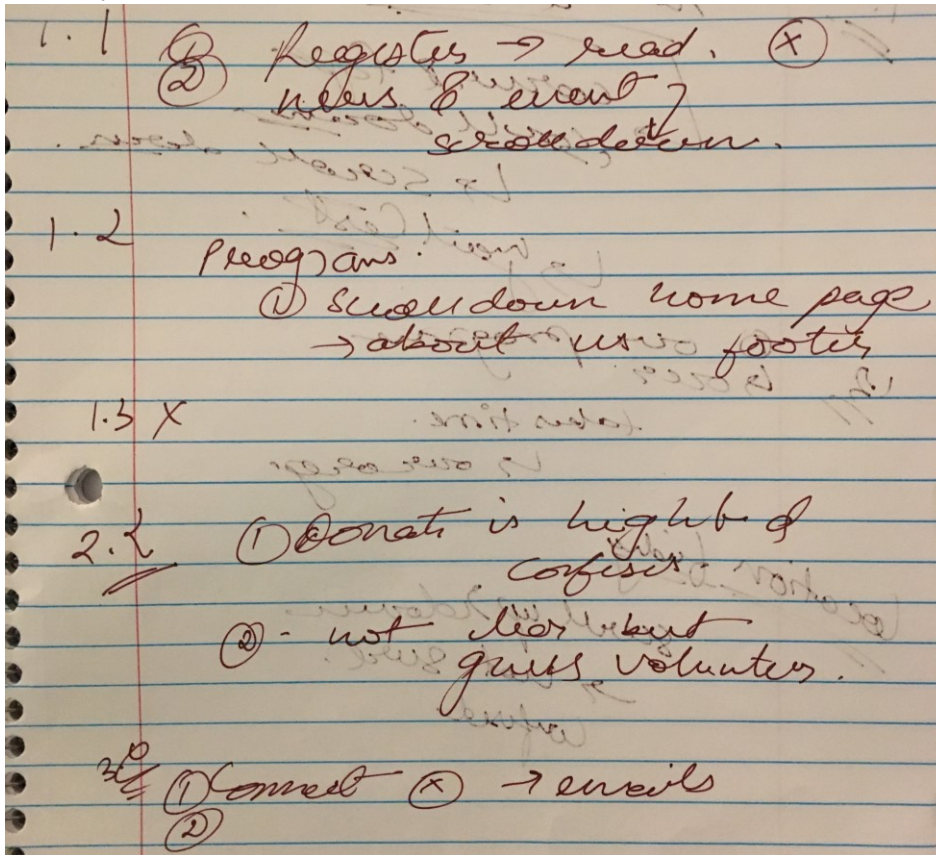 1.1 ① Register → read. ⓧ
② news & event
scroll down.
1.2
Programs.
① scroll down home page
→ about us footer
1.3 X
2.2 ① Donate is
② - not but
guess volunteer.
① Connect ⓧ → emails
②